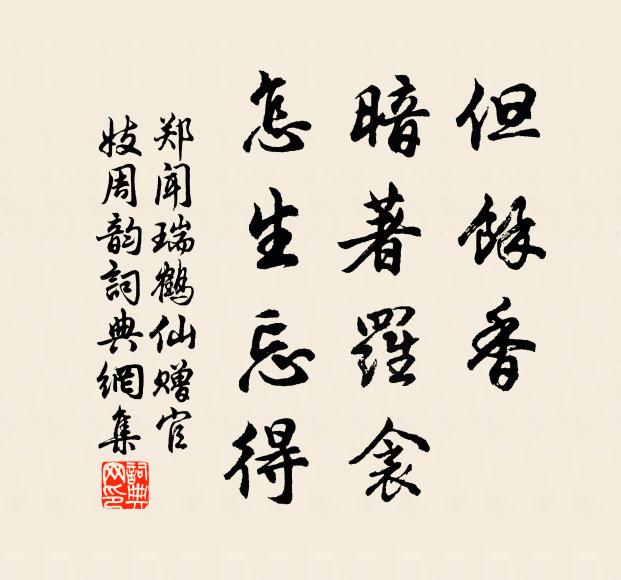 但餘香
暗著羅衾
怎生忘得
郑闻瑞鶴仙赠官
妓周韵詞典網集
詞典
网印